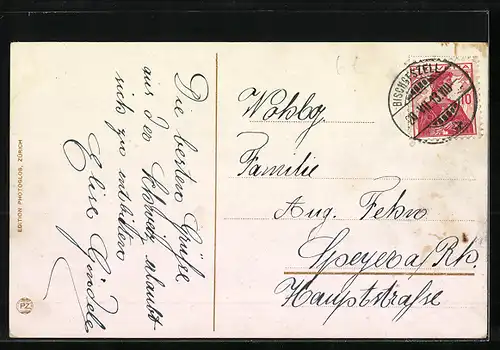 Die besten Grüße
aus der Schweiz erlaubt
sich zu entbieten
Elise
EDITION PHOTOGLOB, ZÜRICH
PZ
BISCHOFSZELL
10
Wohlg.
Familie
Aug. Fehr
Speyer a/Rh.
Hauptstraße